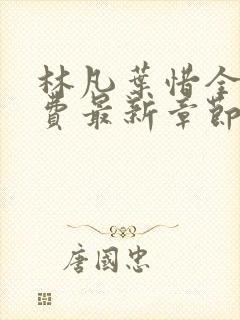 林凡葉惜全
費最新章節
唐國忠